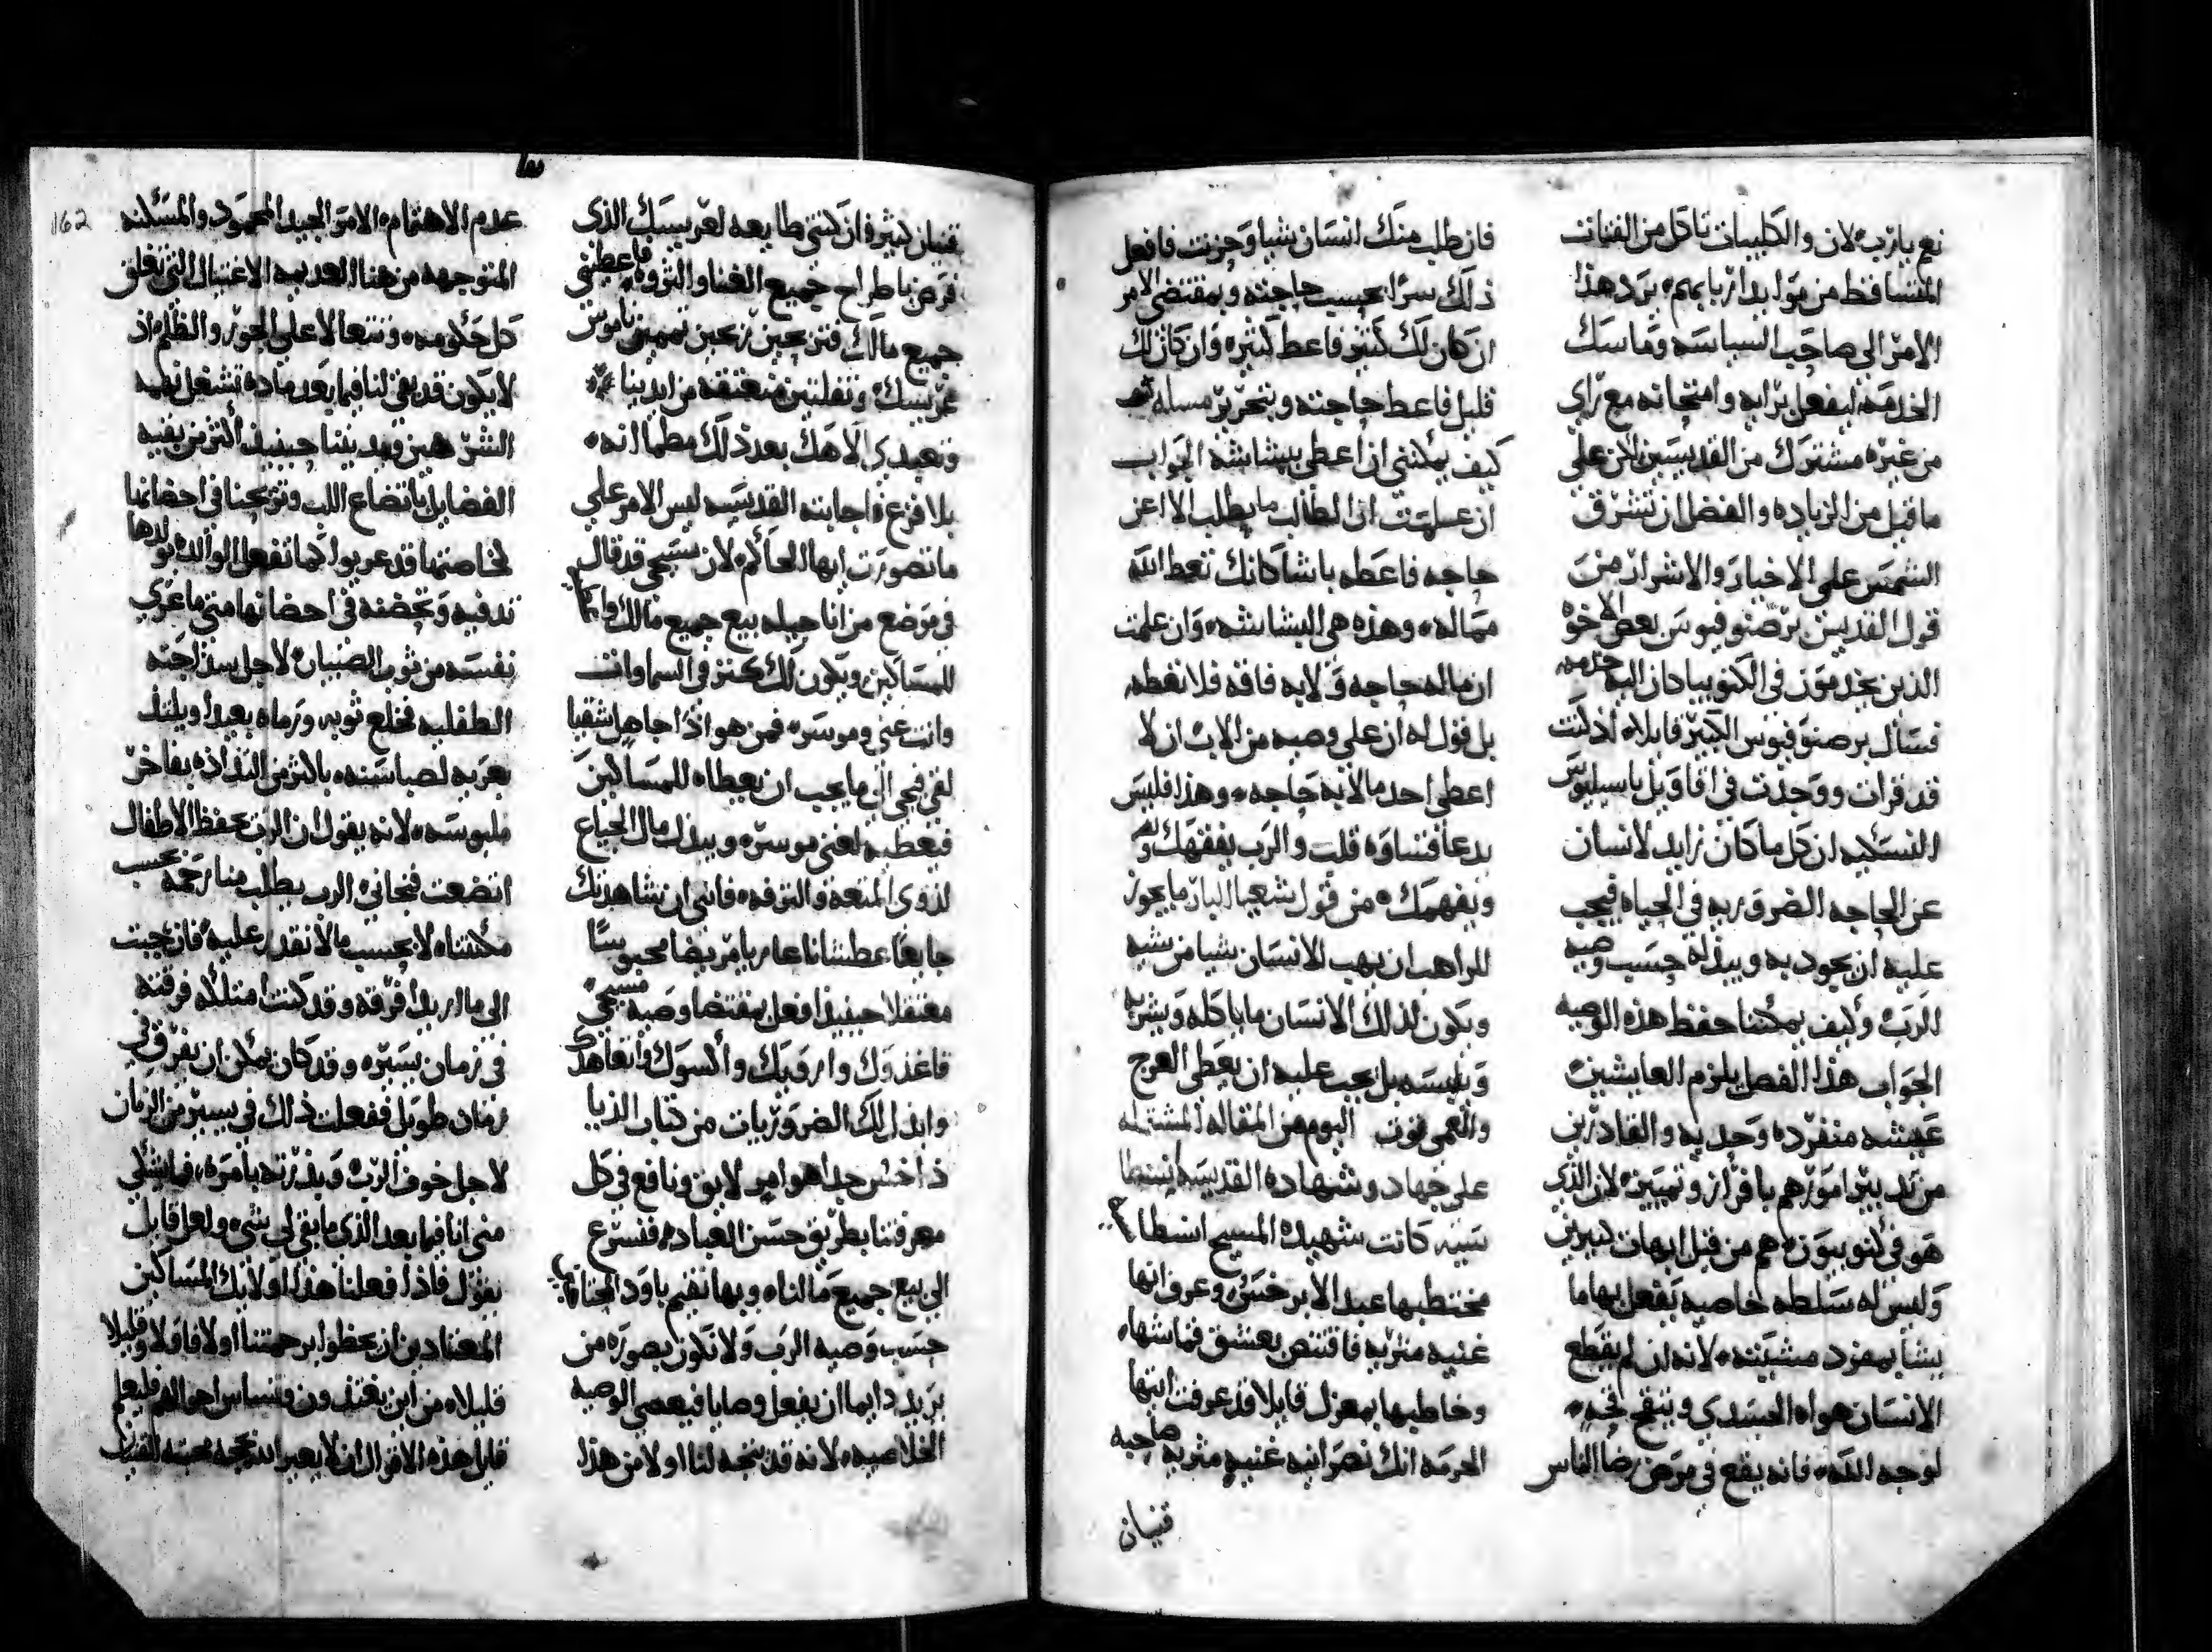 نعم يا رب لان والكليبات تاكل من الفتات
المتساقط من موايد اربابهم يرد هذا
الامر الى صاحب السياسه وماسك
الخدمة ليفعل برايه وامتحانه مع راي
من غيره مشترك من القديسين لان على
ما قيل من الزياده والفضل ان تشرق
الشمس على الاخيار والاشرار من
قول القديس برصنوفيوس بعض الاخوه
الذين يخدمون في الكنوبيا دان اليه خدمه
فسال برصنوفيوس الكبير قايلا اذ كنت
قد قرات ووجدت في اقاويل باسيليوس
النسكيه ان كل ما كان زايد لانسان
عن الحاجه الضروريه في الحياه فيجب
عليه ان يجود به ويبذله حسب وصيه
الرب وكيف يمكننا حفظ هذه الوصيه
الجواب هذا الفصل يلزم العايشين
عيشه منفرده وحديه والقادرين
من تدبير امورهم بافراز وتمييز لان الذي
هو في كنوبيون هم من قبل ابهات كبيرين
وليس له سلطه خاصيه يفعل بها ما
يشا بمفرد مشيته لانه ان لم يقطع
الانسان هواه الجسدي وينقح نحبه
لوجه الله فانه يقع في مرض رضا الناس
فان طلب منك انسان شيا وحزنت فافعل
ذلك سرا بحسب حاجته وبمقتضى الامر
ان كان لك كثير فاعط كثيره وان كان لك
قليل فاعط حاجته وبتحرير مسله
كيف يمكنني ان اعطي ببشاشه الجواب
ان علمت ان الطالب ما يطلب الا عن
حاجه فاعطه باشا كانك تعط الله
مماله وهذه هي البشاشه وان علمت
ان ماله حاجه ولا به فاقه فلا تعطه
بل قول له ان علي وصيه من الاب ان لا
اعطي احد مالا به حاجه وهذا فليس
يدعا قساوه قلت والرب يفقهك
ويفهمك من قول شعيا البار ما يجوز
للراهب ان يهب لانسان شيا من شيه
ويكون لذلك الانسان ما ياكله ويشربه
ويلبسه بل يجب عليه ان يعطي العرج
والعمي اليوم من المقاله المشتمله
على جهاد وشهاده القديسه انسطا
سيه كانت شهيده المسيح انسطا
مختطبها عبد الابرخس وعرف انها
غنيه مثريه فاقتنص بعشق قماشها
وخاطبها بمعزل قايلا قد عرفت ايتها
الحرمه انك نصرانيه غنيه مثريه صاحبه
قنيان
قنيان كثير فان كنتي طايعه لعريسك الذي
فرض باطراح جميع الغنا والثروه فاعطني
جميع مالك فتربحين ربحين تممين ناموس
عريسك وتفلتين منعتقه من ايدينا
وتعبدي الاهك بعد ذلك مطمانه
بلا فزع اجابته القديسه ليس الامر على
ما تصورت ايها الحاكم لان سيحي قد قال
في موضع من اناجيله بيع جميع مالك واعط
للمساكين ويكون لك كنز في السما وانت
وانت غني وموسر فمن هو اذا جاهل شقيا
لقي فيجي الي ما يجب ان يعطاه للمساكين
فيعطيه لغني موسره ويبذل مال الجياع
لذوي المتعه والترفه فانني ان شاهدتك
جايعا عطشانا عاريا مريضا محبوسا
معتقلا حينيذ افعل بمقتضا وصيه مسيحي
فاغذوك وارويك واكسوك واتعاهدك
وابذل لك الضروريات من كتاب الذيا
ذاخس جدا هو امر لايق ونافع في كل
معرفتنا بطريق حسن العباده فنسرع
الى بيع جميع مالنا وبها نقيم باود المحتاج
حسب وصيه الرب ولا نكون بصوره من
يريد دايما ان يفعل وصايا فيعصي الوصيه
الخلاصيه لانه قد يتجه لنا اولا من هذا
162
عدم الاهتمام الامر الجيد المحمود والمسكنه
المتوجهه من هنا العديمه الاغتيال التي تغلق
كل حكومه وتتعالا على الجور والظلم اذ
لا يكون قد بقي لنا فيما بعد ماده تشغل لهيب
الشر هين ويدنينا حينيذ اكثر من بقيه
الفضايل باتضاع اللب وتريحنا في احضانها
لخاصتها قد عربوا كما تفعل الوالده بولدها
تدفيه وتحضنه في احضانها متى ما عري
نفسه من ثوب الصبيان لاجل سذاجته
الطفليه فخلع ثوبه ورماه بعيدا ويلتذ
بعريه لصباسته باكثر من التذاذه بفاخر
ملبوسه لانه يقول ان الرب يحفظ الاطفال
اتضعت فنجاني الرب يطلب منا رحمه بحسب
مكنتنا لا بحسب ما لا نقدر عليه فان جيت
الى ما اريد افرقه وقد كنت امتلكه فرقته
في زمان يسير وقد كان يمكن ان يفرق في
زمان طويل ففعلت ذلك في يسير من الزمان
لاجل خوف الرب وبذرته بامره فما يتبقى
مني انا فيما بعد الذي ما بقي لي شي ولعل قايل
يقول فاذا فعلنا هذا اولايك المساكين
المعتادين ان يحظوا برحمتنا اولا فاولا وقليلا
قليلا من اين يغتذون وتنساس احوالهم فليعلم
قايل هذه الاقوال